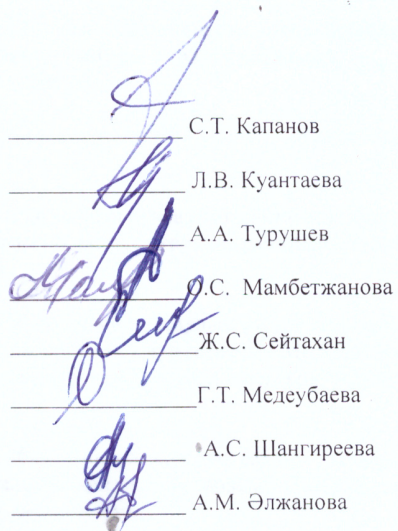 С.Т. Капанов
Л.В. Куантаева
А.А. Турушев
О.С. Мамбетжанова
Ж.С. Сейтахан
Г.Т. Медеубаева
А.С. Шангиреева
А.М. Әлжанова